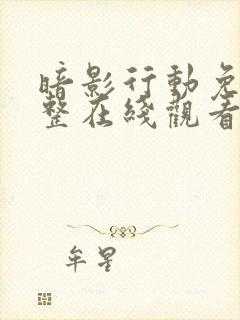 暗影行動免
整在綫觀看
牟星